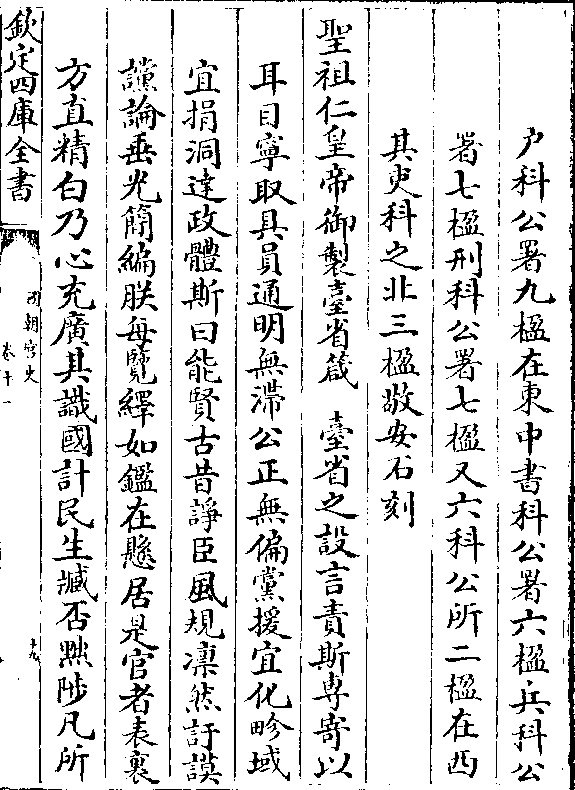 户科公署九楹在東中書科公署六楹兵科公
署七楹刑科公署七楹又六科公所二楹在西
其吏科之北三楹敬安石刻
聖祖仁皇帝御製臺省箴 臺省之設言責斯專寄以
耳目寧取具員通明無滯公正無偏黨援宜化畛域
宜捐洞達政體斯曰能賢古昔諍臣風規凛然訏謨
讜論垂光簡編朕每覽繹如鑑在懸居是官者表裏
方直精白乃心充廣其識國計民生臧否黜陟凡所
欽定四庫全書
國朝宮史
卷十一
十九